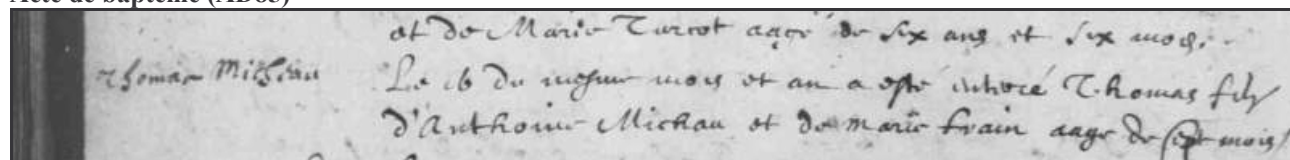 Acte de baptême (AD85)
et de Marie Turcot aagé de six ans et six mois.
Thomas Micheau
Le 16 du mesme mois et an a esté enteré Thomas fils
d'Anthoine Michau et de marie train aage de sept mois